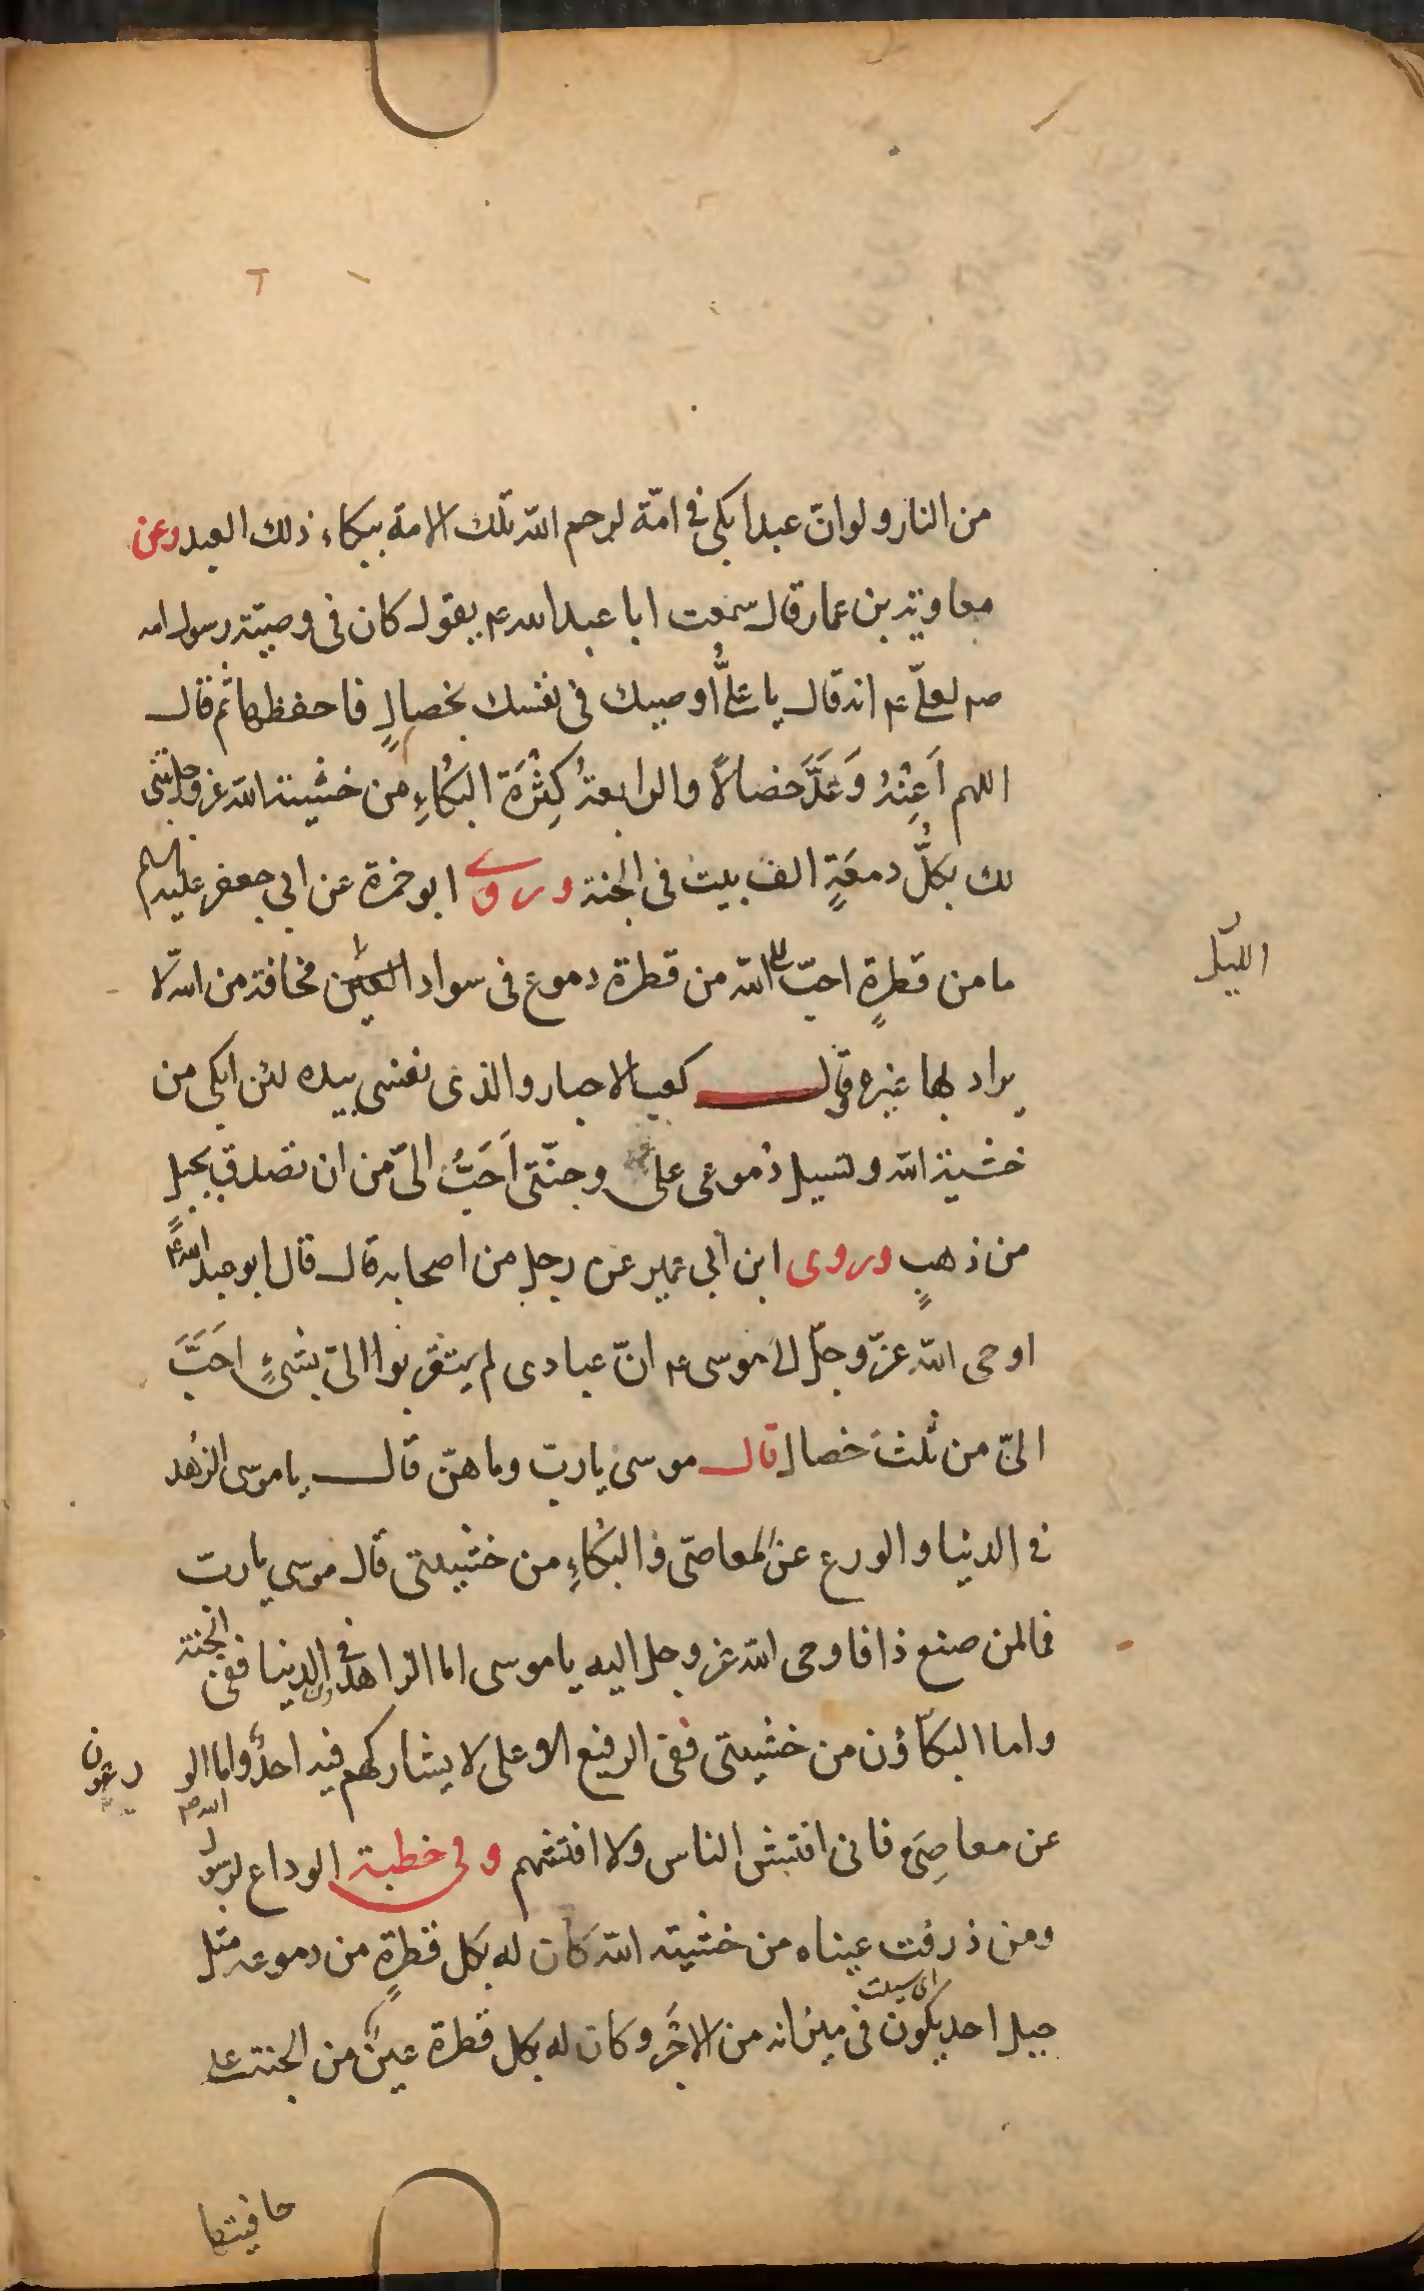 من النار ولو انّ عبدا بكى فى امّة لرحم الله تلك الامة ببكاء ذلك العبد وعن
معاوية بن عمار قال سمعت ابا عبد الله ع يقول كان فى وصيّة رسول الله
ص لعلىّ ع انه قال يا علىُّ اوصيك فى نفسك بخصالٍ فاحفظها ثم قال
اللهم اَعِنْهُ وَعَدَّ خصالاً والرابعةُ كِثْرَة البُكاءِ من خشية الله عز وجل يبنى
لك بكُلِّ دمعَةٍ الف بيت فى الجنة وروى ابو حمزة عن ابى جعفر عليه السلم
ما من قطرةٍ احبّ الى الله من قطرة دموع فى سواد العين مخافة من الله لا
الليل
يراد بها غيره وقال كعب الاحبار والذى نفسى بيده لئن ابكى من
خشية الله وتسيل دُموعى على وجنّتى اَحَبُّ الىّ من ان تصدق بجبل
من ذهبٍ وروى ابن ابى عمير عن رجل من اصحابه قال قال ابو عبد الله ع
اوحى الله عزّ وجلّ الى موسى ع انّ عبادى لم يتقربوا الىّ بشئٍ احَبَّ
الىّ من ثلث خصال قال موسى يا ربّ وما هنّ قال يا موسى الزُهد
فى الدنيا والورع عن المعاصى والبُكاءِ من خشيتى قال موسى يا ربّ
فما لمن صنع ذا فاوحى الله عز وجل اليه يا موسى اما الزاهدون فى الدينا ففى الجنة
واما البكّاؤن من خشيتى ففى الرفيع الاعلى لا يشاركهم فيه احدٌ واما الو
رعون
عن معاصِىَ فانى افتش الناس ولا افتشهم وفى خطبة الوداع لرسول الله ص
ومن ذرفت عيناه من خشية الله كان له بكل قطرةٍ من دموعه مثل
اى سيلت
جبل احد يكون فى ميزانه من الاجر وكان له بكل قطرة عينٌ من الجنة على
حافيتها